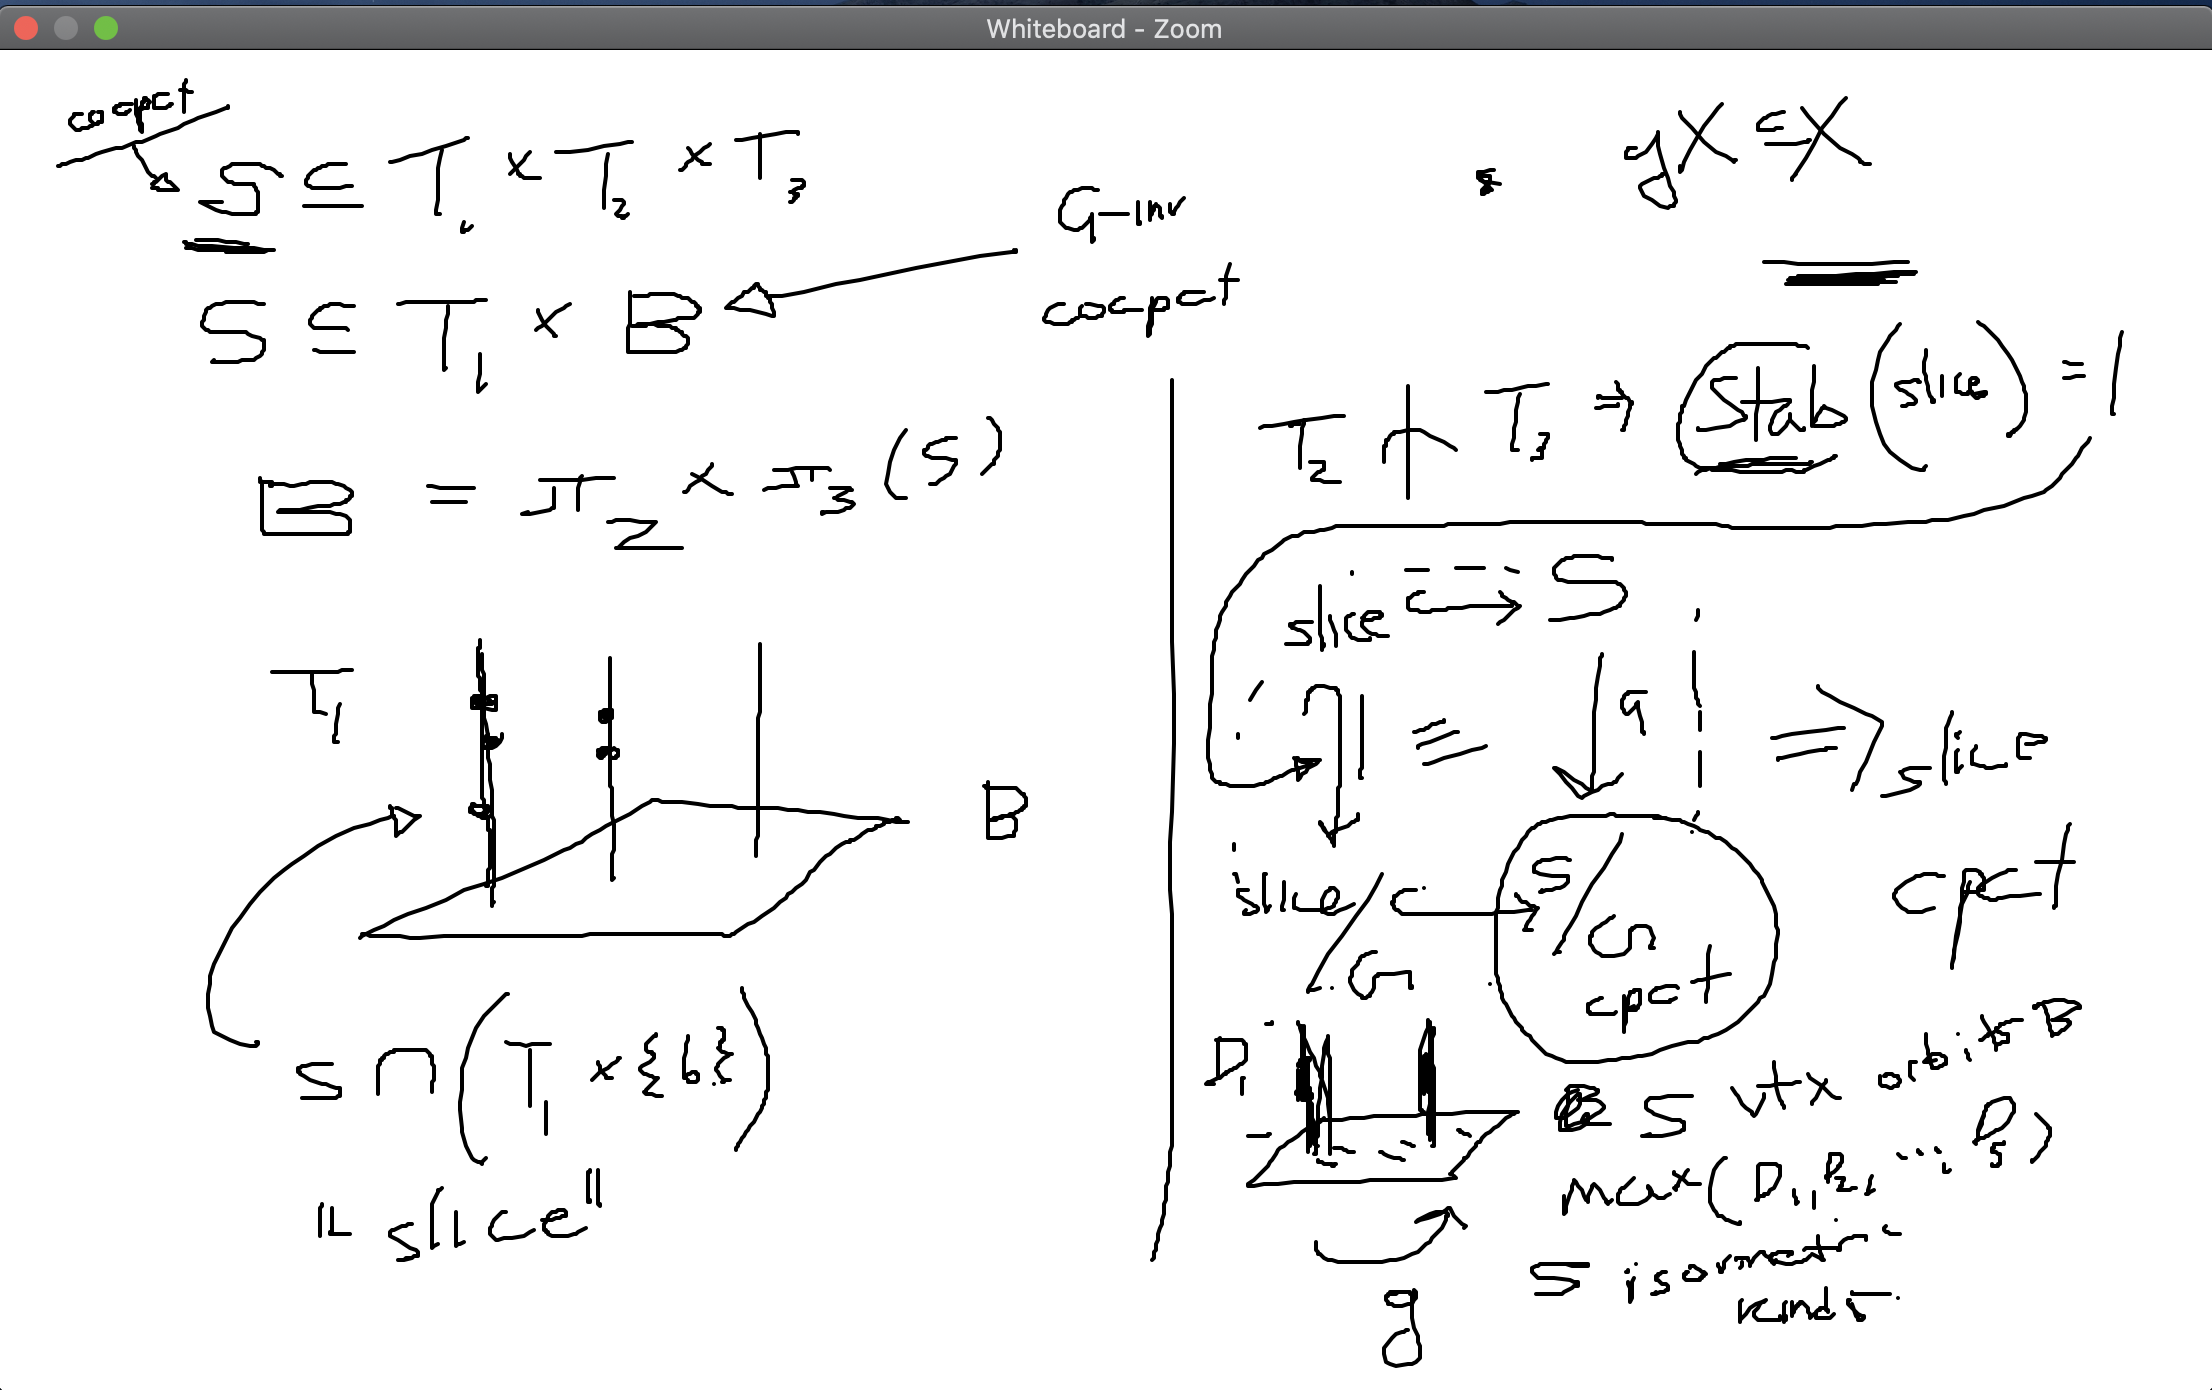 Whiteboard - Zoom
cocpct
S ⊆ T₁ × T₂ × T₃
S ⊆ T₁ × B
G-inv
cocpct
B = π₂ × π₃ (S)
T₁
B
S ∩ (T₁ × {b})
"slice"
gX ⊆ X
T₂ ⋔ T₃ ⇒ Stab (slice) = 1
slice ↪ S
≡
q
⇒ slice
cpct
slice/G ↪ S/G
cpct
D₁
g
5 vtx orbits B
max(D₁, D₂, ..., D₅)
5 isometric
kinds